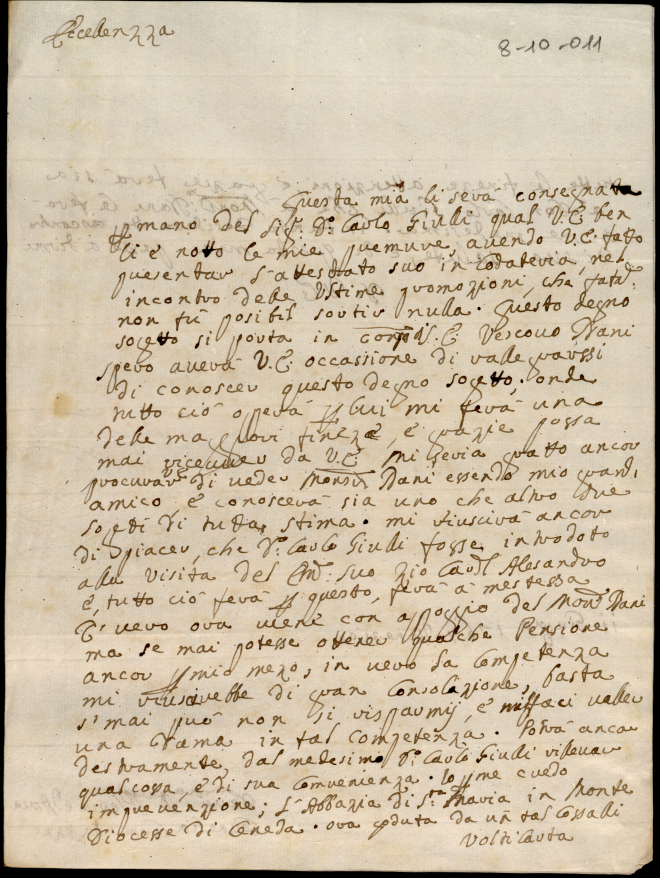 Eccellenzza
8-10-011
Questa mia li serà consegnata
p mano del Sig.r D.n Carlo Giulli qual V.E. ben
li è notto le mie premure, avendo V.E. fatto
presentar l'attestato suo in Codateria, nel
incontro delle Ultime promozioni, che
non fù posibil sortir nulla. Questo degno
sogetto si porta in V.E. Vescovo Dani
spero averà V.E. occassione di vallegrarssi
di conoscer questo degno sogetto, onde
tutto ciò opperà p lui mi ferà una
delle magiori fineze, è grazie possa
mai riceuer da V.E. Mi seria gratto ancor
procurar di ueder Monsr. Dani essendo mio grand.
amico, è conoscerà sia uno che altro due
sogetti di tutta stima. mi riuscirà ancor
di piacer, che D.n Carlo Giulli fosse introdoto
alla Visita del Em. suo Zio Card.l Alesandro
è, tutto ciò ferà p questo, ferà à mestessa
E' uero ora uiene con apoggio del Mons. Dani
ma se mai potesse ottener qualche Pensione
ancor p mio mezo, in uero la Competenza
mi riuscirebbe di gran Consolazione, basta
s'mai può non si risparmij, è mi faci ualler
una Dama in tal Competenza. Potrà anca
destramente, dal medesimo D.n Carlo Giulli rilleuar
qualcossa è di sua Conuenienza. Io p me credo
impreuenzione; L'Abbazia di S.ta Maria in Monte
Diocesse di Ceneda. ora goduta da un tal Cossalli
Volti Carta